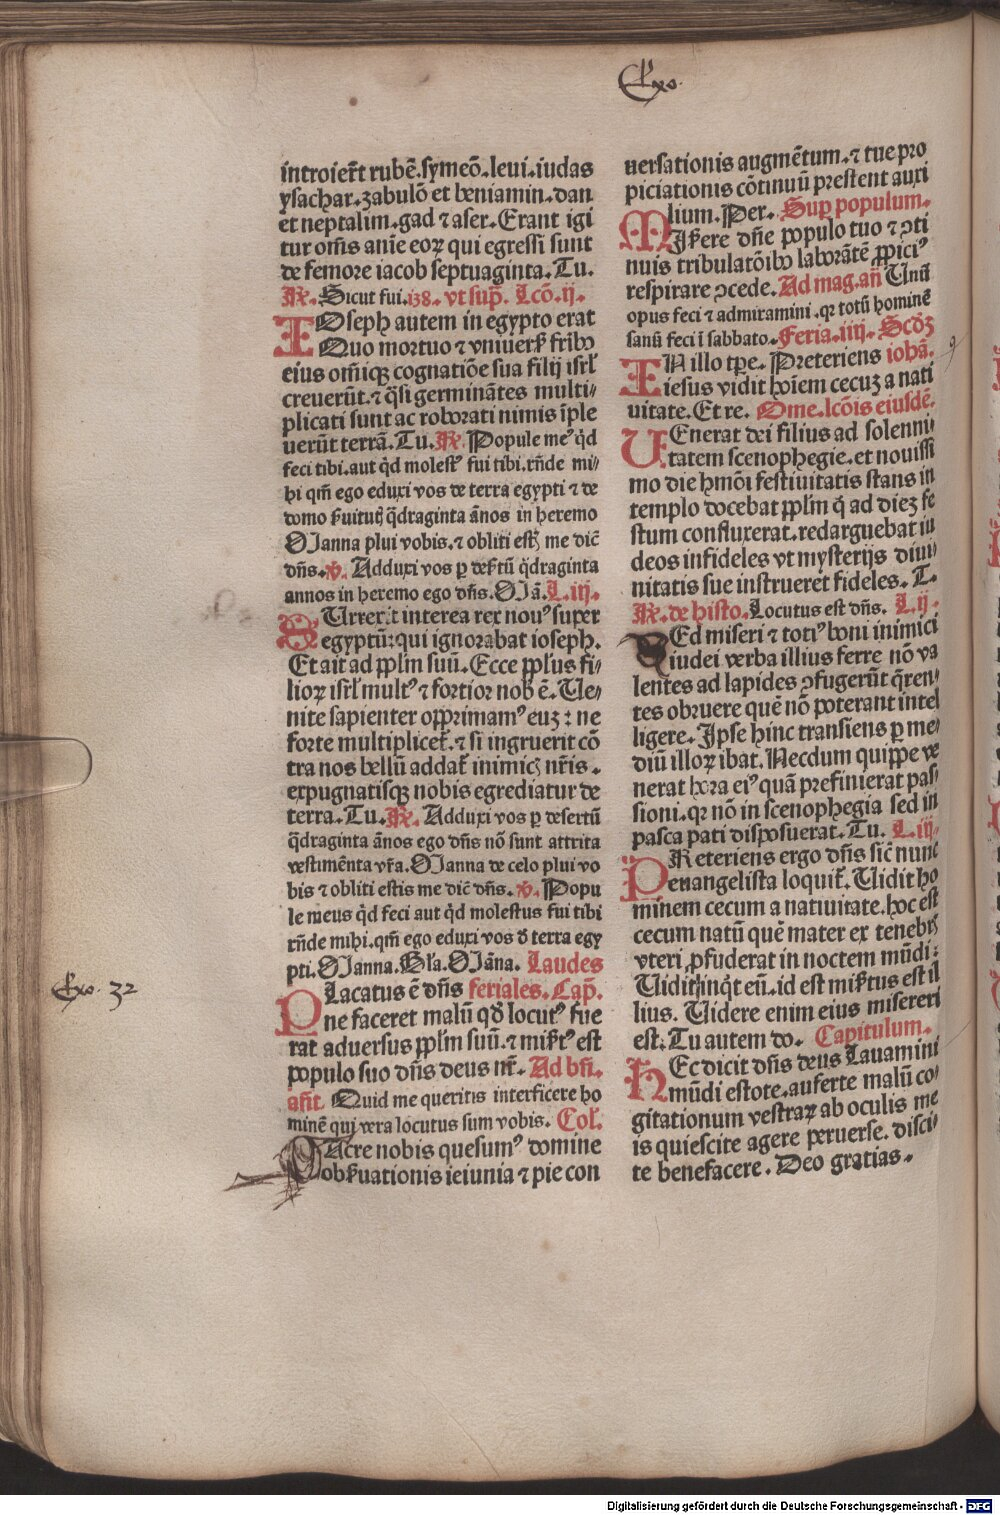 Exo.
introier̄t rubē.symeō.leui.iudas
ysachar.zabulō et beniamin.dan
et neptalim.gad ⁊ aser.Erant igi
tur om̄s anīe eoꝝ qui egressi sunt
de femore iacob septuaginta.Tu.
℞. Sicut fui.138. vt sup̄. Lcō.ij.
IOseph autem in egypto erat
Quo mortuo ⁊ vniuers̄ frībꝰ
eius om̄iqꝫ cognatiōe sua filij isrl̄
creuerūt.⁊ q̄si germinātes multi⸗
plicati sunt ac roborati nimis īple
uerūt terrā.Tu.℞. Popule meꝰ qd̄
feci tibi.aut qd̄ molestꝰ fui tibi.rn̄de mi⸗
hi qm̄ ego eduxi vos de terra egypti ⁊ de
domo s̄uitutꝭ q̄draginta ānos in heremo
Osanna plui vobis.⁊ obliti estꝭ me dic̄
dn̄s.℣. Adduxi vos ꝑ des̄tū q̄draginta
annos in heremo ego dn̄s.Osā.L.iij.
SUrrexit interea rex nouꝰ super
egyptū:qui ignorabat ioseph.
Et ait ad ppl̄m suū.Ecce ppl̄us fi⸗
lioꝝ isrl̄ multꝰ ⁊ fortior nob̄ ē.Ue⸗
nite sapienter opprimamꝰ euꝫ:ne
forte multiplicet̄.⁊ si ingruerit cō
tra nos bellū addat̄ inimicꝭ nr̄is.
expugnatisqꝫ nobis egrediatur de
terra.Tu.℞. Adduxi vos ꝑ desertū
q̄draginta ānos ego dn̄s nō sunt attrita
vestimēnta vr̄a.Osanna de celo plui vo
bis ⁊ obliti estis me dic̄ dn̄s.℣. Popu
le meus qd̄ feci aut qd̄ molestus fui tibi
rn̄de mihi.qm̄ ego eduxi vos d̄ terra egy
pti.Osanna.Gl̄a.Osāna. Laudes
Exo. 32
PLacatus ē dn̄s feriales.Cap̄.
ne faceret malū qd̄ locutꝰ fue
rat aduersus ppl̄m suū.⁊ mis̄tꝰ est
populo suo dn̄s deus nr̄. Ad bn̄.
an̄. Quid me queritis interficere ho
minē qui vera locutus sum vobis. Col̄.
SAcre nobis quesumꝰ domine
obs̄uationis ieiunia ⁊ pie con
uersationis augmētum.⁊ tue pro
piciationis cōtinuū prestent auxi
lium.Per. Sup̄ populum.
MIs̄ere dn̄e populo tuo ⁊ ꝯti
nuis tribulatōibꝰ laborātē ꝓpiciꝰ
respirare ꝯcede. Ad mag.an̄ Unū
opus feci ⁊ admiramini.qꝛ totū hominē
sanū feci ī sabbato. Feria.iiij. Scd̄ꝫ
IN illo tp̄e. Preteriens iohā. 9
iesus vidit hoīem cecuꝫ a nati
uitate.Et re. Ome.lcōis eiusdē.
UEnerat dei filius ad solenni⸗
tatem scenophegie.et nouissi
mo die hmōi festiuitatis stans in
templo docebat ppl̄m q̄ ad dieꝫ fe
stum confluxerat.redarguebat iu
deos infideles vt mysterijs diui⸗
nitatis sue instrueret fideles.T.
℞. de histo. Locutus est dn̄s. L.ij.
SEd miseri ⁊ totiꝰ boni inimici
iudei verba illius ferre nō va
lentes ad lapides ꝯfugerūt q̄ren⸗
tes obruere quē nō poterant intel
ligere.Ipse hinc transiens ꝑ me⸗
diū illoꝝ ibat.Necdum quippe ve
nerat hora eiꝰ quā prefinierat pas⸗
sioni.qꝛ nō in scenophegia sed in
pasca pati disposuerat.Tu. L.iij.
PReteriens ergo dn̄s sic̄ nunc
euangelista loquit̄.Uidit ho
minem cecum a natiuitate.hoc est
cecum natū quē mater ex tenebrꝭ
vteri ꝓfuderat in noctem mūdi:
Uidit inq̄t eū.id est mis̄tus est il
lius. Uidere enim eius misereri
est.Tu autem do. Capitulum.
HEc dicit dn̄s deus Lauamini
mūdi estote.auferte malū co⸗
gitationum vestraꝝ ab oculis me
is quiescite agere peruerse.disci⸗
te benefacere. Deo gratias.
Digitalisierung gefördert durch die Deutsche Forschungsgemeinschaft - DFG